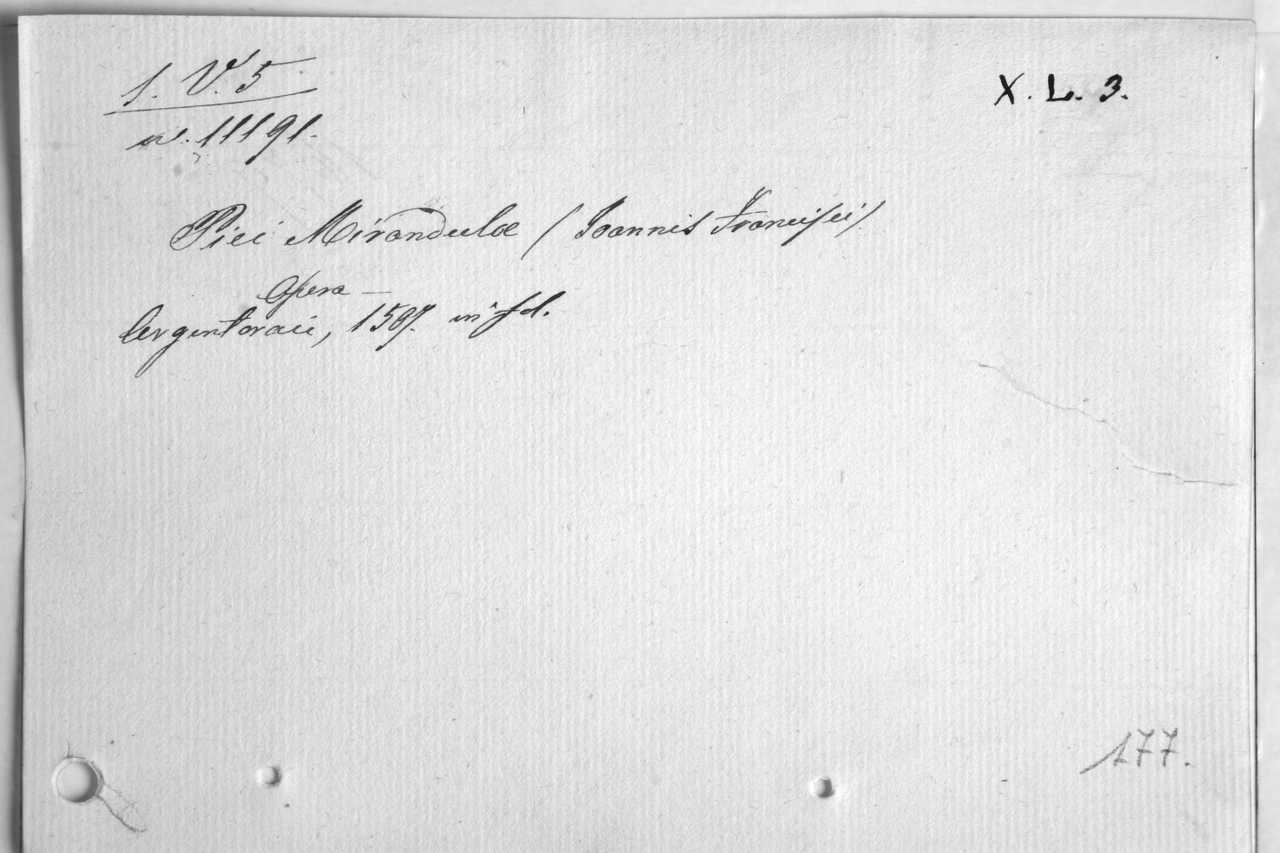 1. V. 5
X. L. 3.
n. 11191.
Pici Mirandulae (Joannis Francisci).
Opera —
Argentoraci, 1507. in fol.
177.